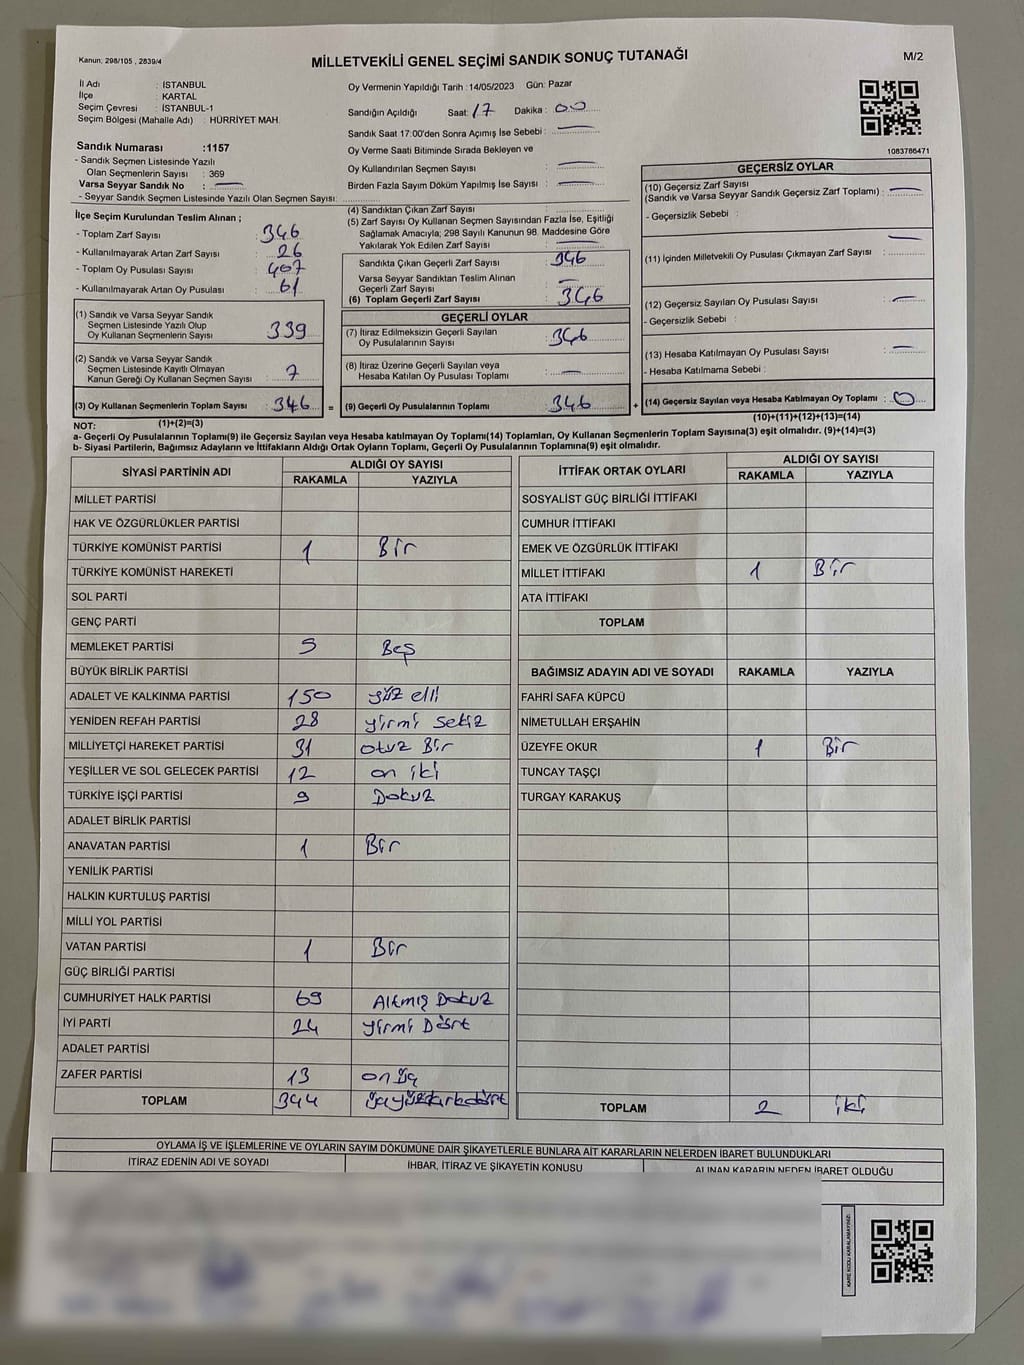 Kanun; 298/105 , 2839/4
MİLLETVEKİLİ GENEL SEÇİMİ SANDIK SONUÇ TUTANAĞI
M/2
İl Adı : İSTANBUL
İlçe : KARTAL
Seçim Çevresi : İSTANBUL-1
Seçim Bölgesi (Mahalle Adı) : HÜRRİYET MAH.
Sandık Numarası :1157
- Sandık Seçmen Listesinde Yazılı
Olan Seçmenlerin Sayısı : 369
Varsa Seyyar Sandık No : —
- Seyyar Sandık Seçmen Listesinde Yazılı Olan Seçmen Sayısı:
Oy Vermenin Yapıldığı Tarih : 14/05/2023 Gün: Pazar
Sandığın Açıldığı Saat: 17 Dakika : 00
Sandık Saat 17:00'den Sonra Açımış İse Sebebi : —
Oy Verme Saati Bitiminde Sırada Bekleyen ve
Oy Kullandırılan Seçmen Sayısı : —
Birden Fazla Sayım Döküm Yapılmış İse Sayısı : —
1083786471
İlçe Seçim Kurulundan Teslim Alınan ;
- Toplam Zarf Sayısı : 346
- Kullanılmayarak Artan Zarf Sayısı : 26
- Toplam Oy Pusulası Sayısı : 407
- Kullanılmayarak Artan Oy Pusulası : 61
(1) Sandık ve Varsa Seyyar Sandık
Seçmen Listesinde Yazılı Olup
Oy Kullanan Seçmenlerin Sayısı : 339
(2) Sandık ve Varsa Seyyar Sandık
Seçmen Listesinde Kayıtlı Olmayan
Kanun Gereği Oy Kullanan Seçmen Sayısı : 7
(3) Oy Kullanan Seçmenlerin Toplam Sayısı : 346
(1)+(2)=(3)
(4) Sandıktan Çıkan Zarf Sayısı :
(5) Zarf Sayısı Oy Kullanan Seçmen Sayısından Fazla İse, Eşitliği
Sağlamak Amacıyla; 298 Sayılı Kanunun 98. Maddesine Göre
Yakılarak Yok Edilen Zarf Sayısı : —
Sandıkta Çıkan Geçerli Zarf Sayısı : 346
Varsa Seyyar Sandıktan Teslim Alınan
Geçerli Zarf Sayısı : —
(6) Toplam Geçerli Zarf Sayısı : 346
GEÇERLİ OYLAR
(7) İtiraz Edilmeksizin Geçerli Sayılan
Oy Pusulalarının Sayısı : 346
(8) İtiraz Üzerine Geçerli Sayılan veya
Hesaba Katılan Oy Pusulası Toplamı : —
= (9) Geçerli Oy Pusulalarının Toplamı : 346
GEÇERSİZ OYLAR
(10) Geçersiz Zarf Sayısı
(Sandık ve Varsa Seyyar Sandık Geçersiz Zarf Toplamı) : —
- Geçersizlik Sebebi :
(11) İçinden Milletvekili Oy Pusulası Çıkmayan Zarf Sayısı : —
(12) Geçersiz Sayılan Oy Pusulası Sayısı : —
- Geçersizlik Sebebi :
(13) Hesaba Katılmayan Oy Pusulası Sayısı : —
- Hesaba Katılmama Sebebi :
+ (14) Geçersiz Sayılan veya Hesaba Katılmayan Oy Toplamı : 0
(10)+(11)+(12)+(13)=(14)
NOT:
a- Geçerli Oy Pusulalarının Toplamı(9) ile Geçersiz Sayılan veya Hesaba katılmayan Oy Toplamı(14) Toplamları, Oy Kullanan Seçmenlerin Toplam Sayısına(3) eşit olmalıdır. (9)+(14)=(3)
b- Siyasi Partilerin, Bağımsız Adayların ve İttifakların Aldığı Ortak Oyların Toplamı, Geçerli Oy Pusulalarının Toplamına(9) eşit olmalıdır.
SİYASİ PARTİNİN ADI ALDIĞI OY SAYISI
RAKAMLA YAZIYLA
MİLLET PARTİSİ
HAK VE ÖZGÜRLÜKLER PARTİSİ
TÜRKİYE KOMÜNİST PARTİSİ 1 Bir
TÜRKİYE KOMÜNİST HAREKETİ
SOL PARTİ
GENÇ PARTİ
MEMLEKET PARTİSİ 5 Beş
BÜYÜK BİRLİK PARTİSİ
ADALET VE KALKINMA PARTİSİ 150 yüz elli
YENİDEN REFAH PARTİSİ 28 yirmi sekiz
MİLLİYETÇİ HAREKET PARTİSİ 31 otuz Bir
YEŞİLLER VE SOL GELECEK PARTİSİ 12 on iki
TÜRKİYE İŞÇİ PARTİSİ 9 Dokuz
ADALET BİRLİK PARTİSİ
ANAVATAN PARTİSİ 1 Bir
YENİLİK PARTİSİ
HALKIN KURTULUŞ PARTİSİ
MİLLİ YOL PARTİSİ
VATAN PARTİSİ 1 Bir
GÜÇ BİRLİĞİ PARTİSİ
CUMHURİYET HALK PARTİSİ 69 Altmış Dokuz
İYİ PARTİ 24 yirmi Dört
ADALET PARTİSİ
ZAFER PARTİSİ 13 on üç
TOPLAM 344 üçyüzkırkdört
İTTİFAK ORTAK OYLARI ALDIĞI OY SAYISI
RAKAMLA YAZIYLA
SOSYALİST GÜÇ BİRLİĞİ İTTİFAKI
CUMHUR İTTİFAKI
EMEK VE ÖZGÜRLÜK İTTİFAKI
MİLLET İTTİFAKI 1 Bir
ATA İTTİFAKI
TOPLAM
BAĞIMSIZ ADAYIN ADI VE SOYADI RAKAMLA YAZIYLA
FAHRİ SAFA KÜPCÜ
NİMETULLAH ERŞAHİN
ÜZEYFE OKUR 1 Bir
TUNCAY TAŞÇI
TURGAY KARAKUŞ
TOPLAM 2 iki
OYLAMA İŞ VE İŞLEMLERİNE VE OYLARIN SAYIM DÖKÜMÜNE DAİR ŞİKAYETLERLE BUNLARA AİT KARARLARIN NELERDEN İBARET BULUNDUKLARI
İTİRAZ EDENİN ADI VE SOYADI İHBAR, İTİRAZ VE ŞİKAYETİN KONUSU ALINAN KARARIN NEDEN İBARET OLDUĞU
KARE KODU KARALAMAYINIZ!